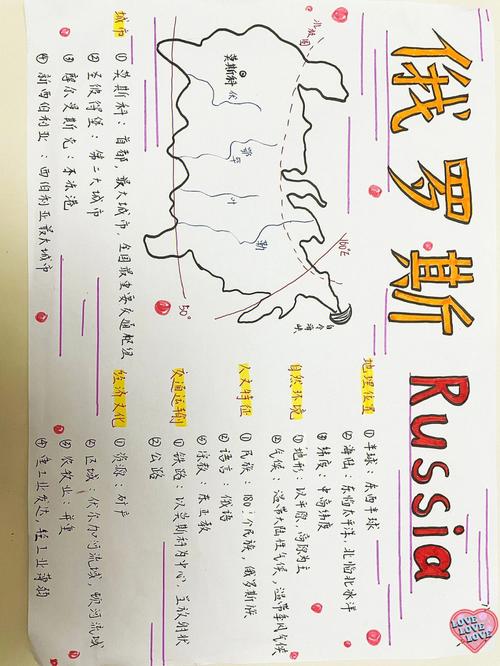 俄罗斯 Russia
北极圈
莫斯科
伏
鄂毕
叶
勒
160°E
50°
白令海峡
地理位置
①半球：东西半球
②海陆：东临太平洋、北临北冰洋
③纬度：中高纬度
自然环境
①地形：以平原、高原为主
②气候：温带大陆性气候、温带季风气候
人文特征
①民族：180多个民族，俄罗斯族
②语言：俄语
③宗教：东正教
交通运输
①铁路：以莫斯科为中心，呈放射状
②公路
经济文化
①资源：矿产
②区域：伏尔加河流域，顿河流域
③农牧业：并重
④重工业发达，轻工业薄弱
城市
①莫斯科：首都，最大城市，全国最重要交通枢纽
②圣彼得堡：第二大城市
③摩尔曼斯克：不冻港
④新西伯利亚：西伯利亚最大城市
LOVE
LOVE
LOVE